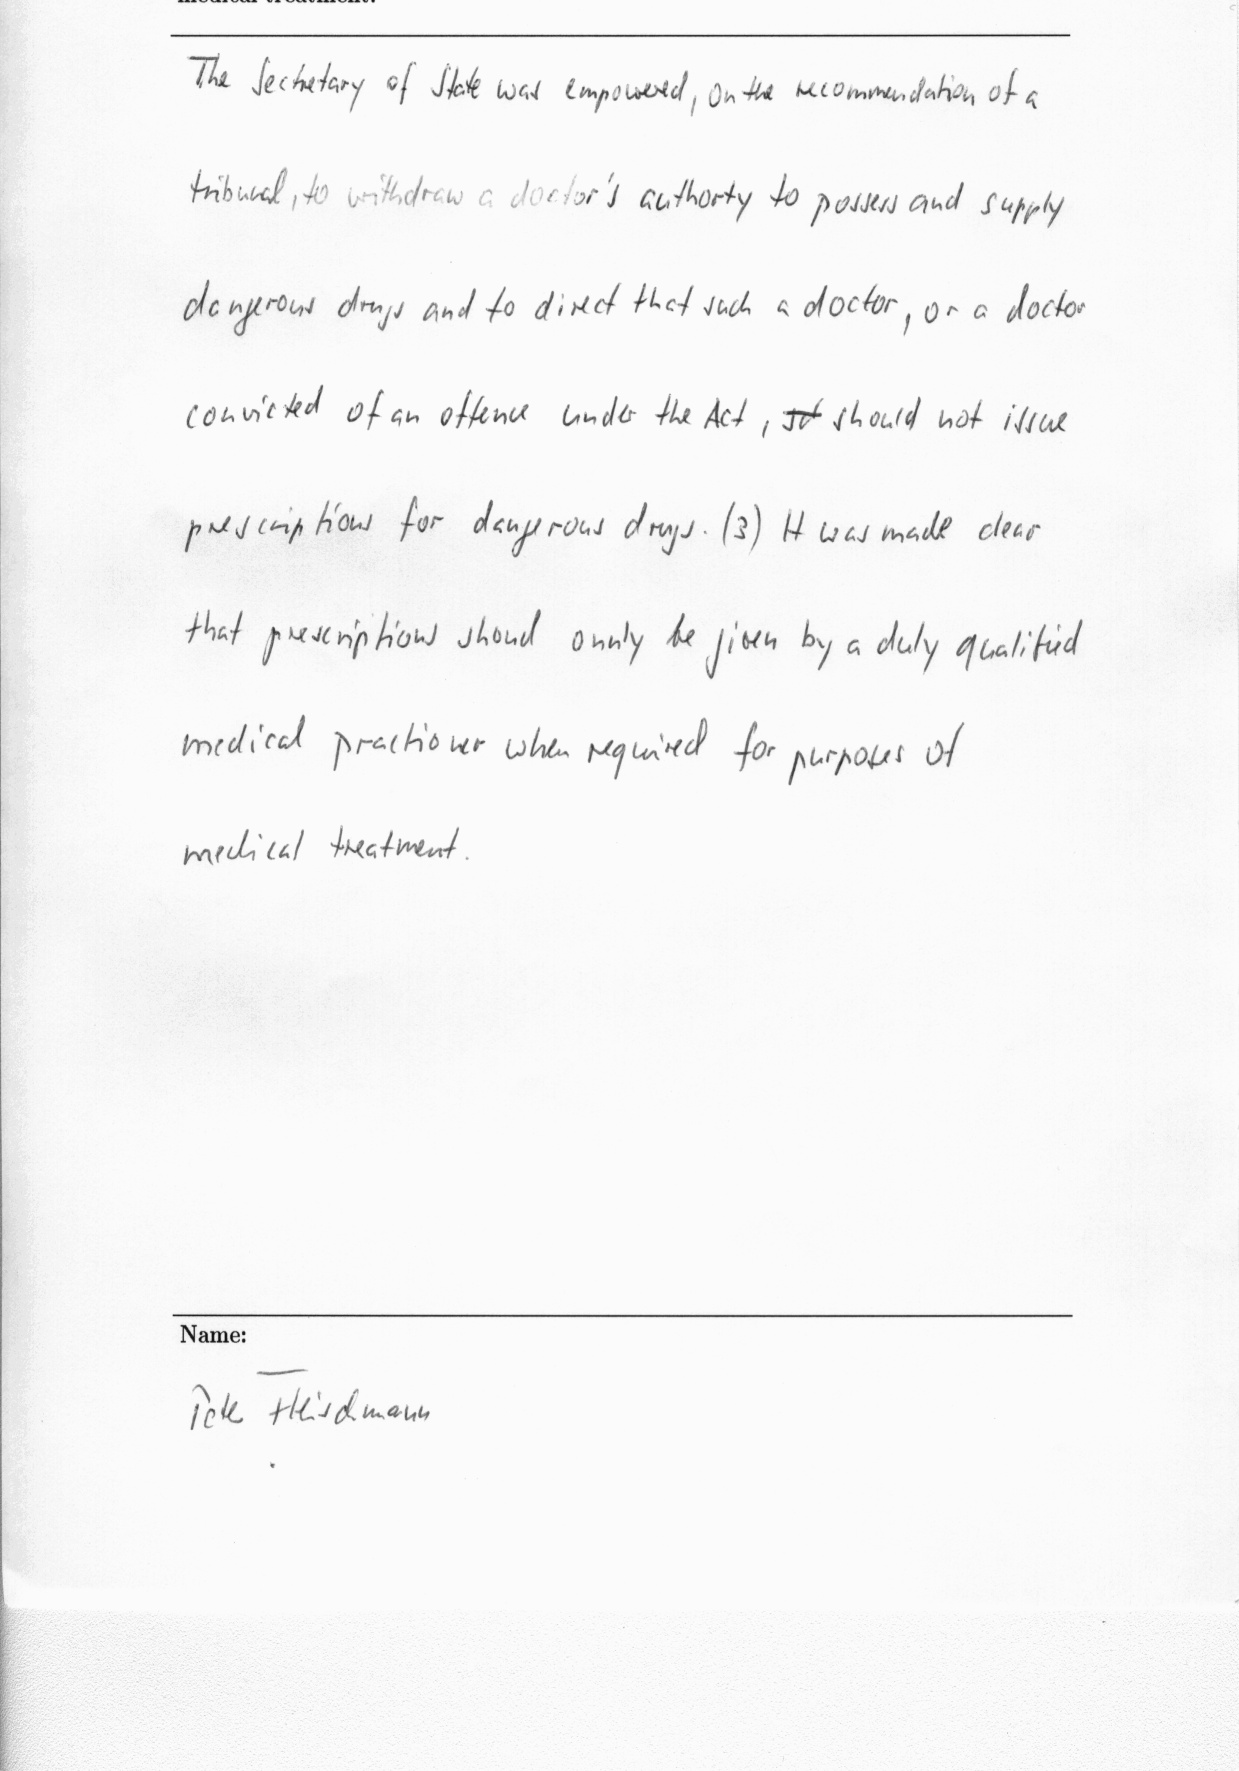 medical treatment.
The Secretary of State was empowered, on the recommendation of a
tribunal, to withdraw a doctor's authorty to possess and supply
dangerous drugs and to direct that such a doctor, or a doctor
convicted of an offence under the Act, should not issue
prescriptions for dangerous drugs. (3) It was made clear
that prescriptions shoud onnly be given by a duly qualified
medical practioner when required for purposes of
medical treatment.
Name:
Peter Fleischmann